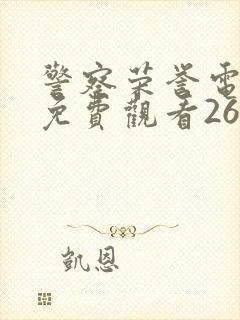 警察荣誉電
免費觀看26
凱恩